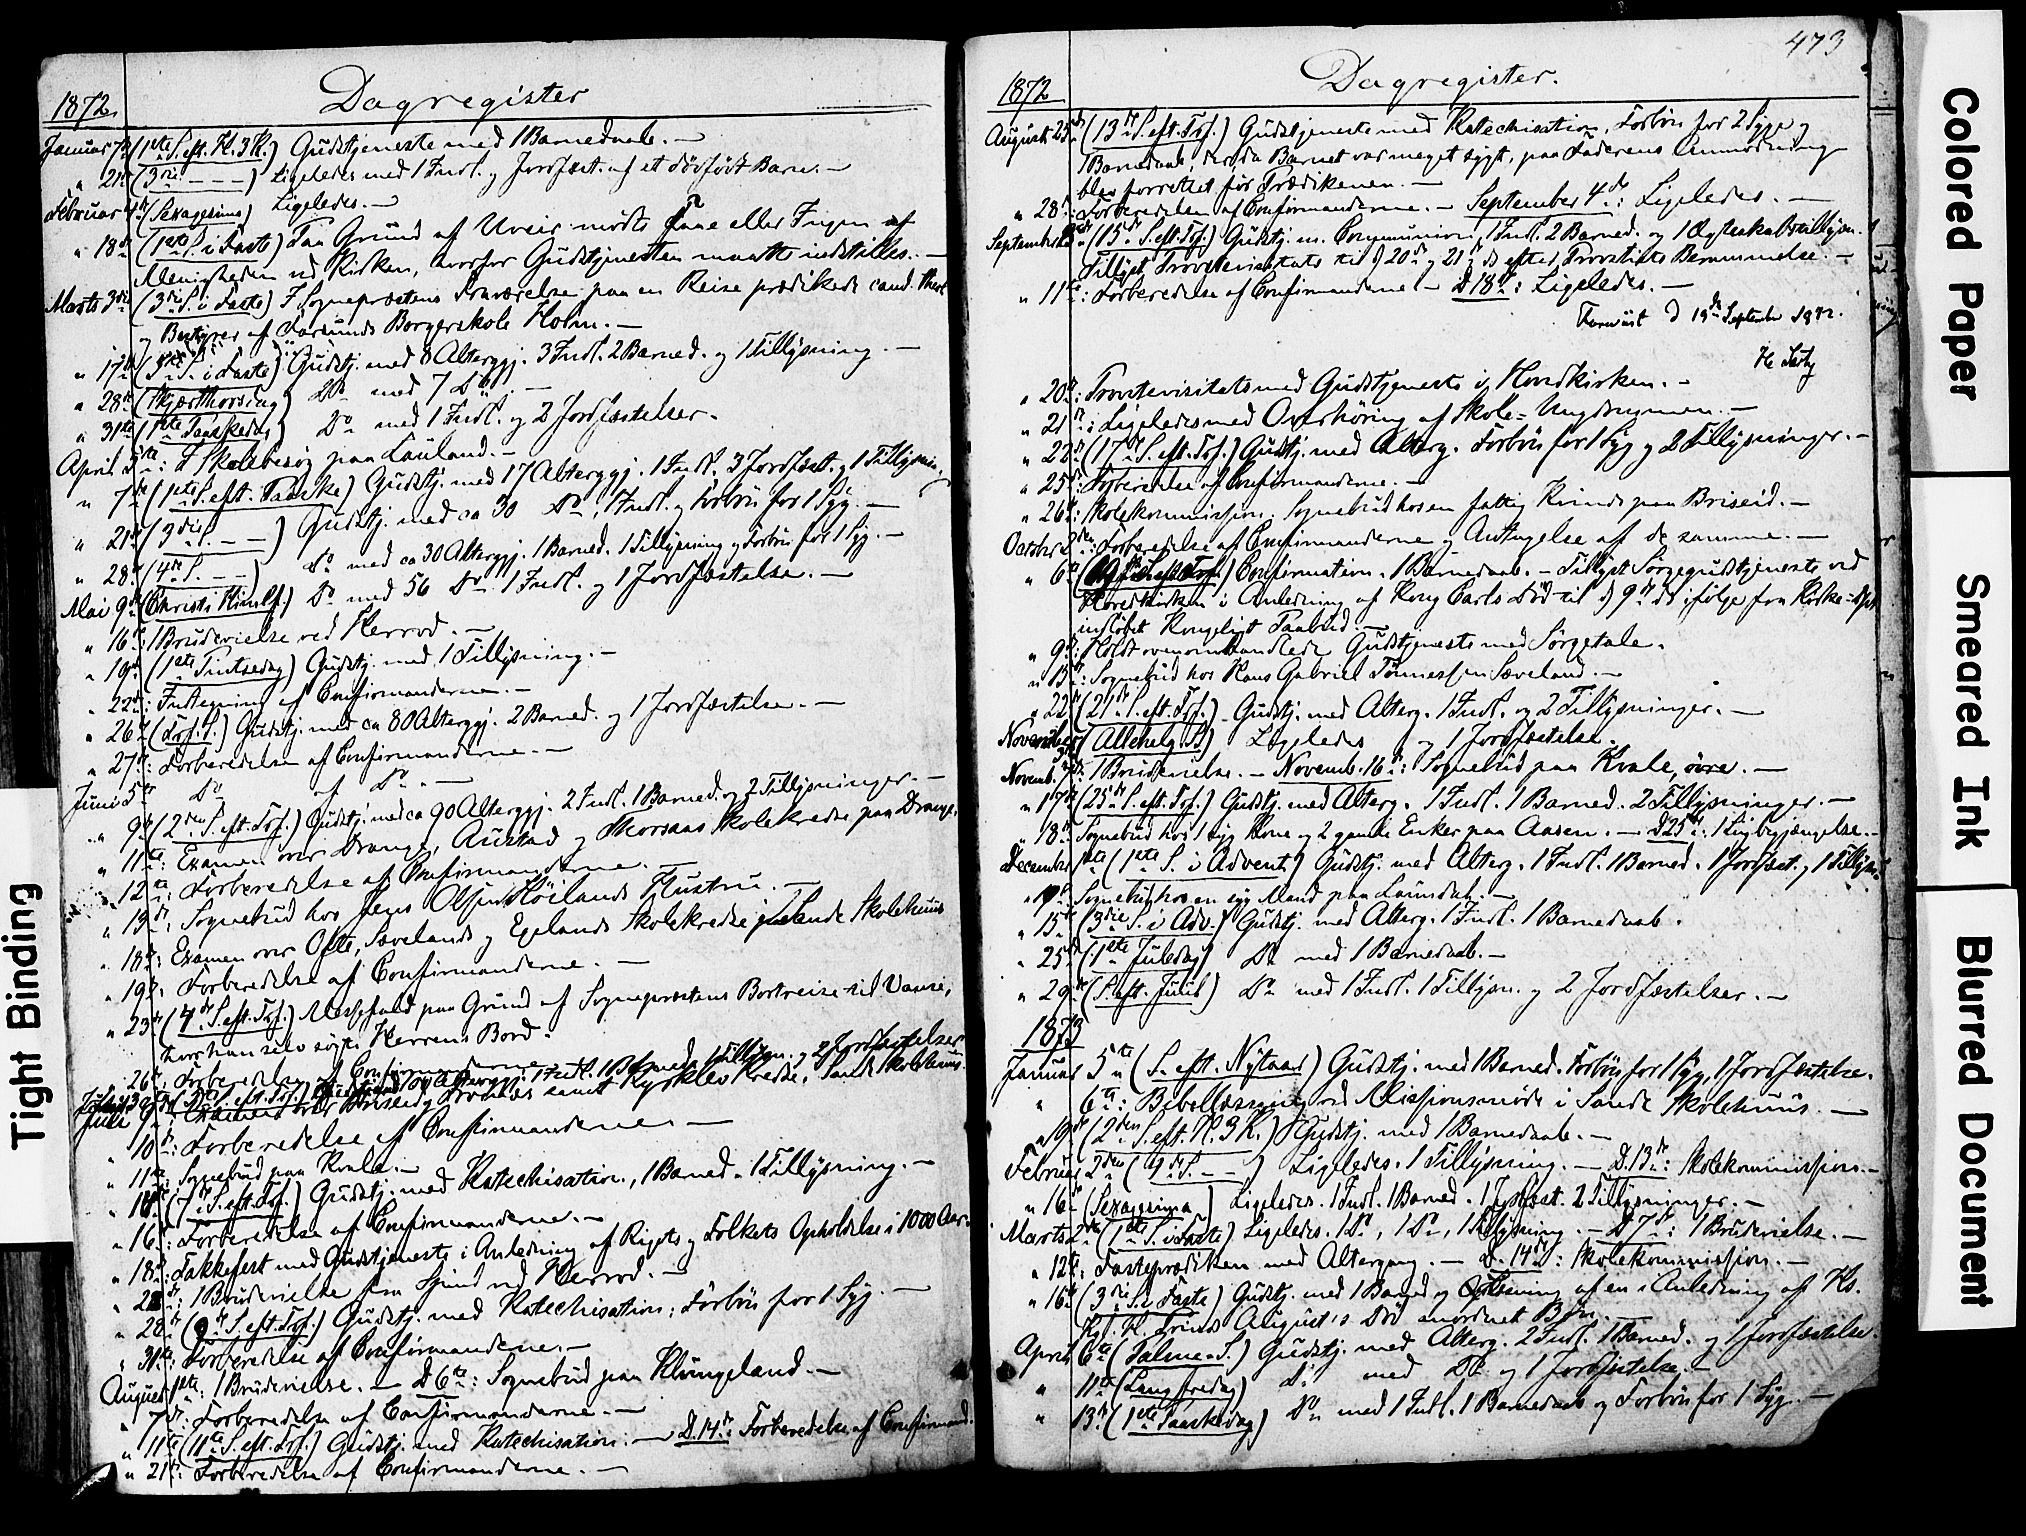 Dagregister
1872
Januar 7de (1ste S. eft. H. 3 K.) Gudstjeneste med 1 Barnedaab. –
" 21de (3die – – –) Ligeledes med 1 Indl. og Jordfæst. af et dödfödt Barn. –
Februar 4de (Sexagesima) Ligeledes. –
" 18de (1ste S. i Faste) Paa Grund af Uveir mödte Faae eller Ingen af
Menigheden ved Kirken, hvorfor Gudstjenesten maatte indstilles. –
Marts 3die (3die S. i Faste) I Sognepræstens Fraværelse paa en Reise prædikede cand. theol.
og Bestyrer af Farsunds Borgerskole Holm. –
" 17de (5te S. i Faste) Gudstj. med 8 Altergj. 3 Indl. 2 Barned. og 1 Tillysning. –
" 28de (Skjærthorsdag) Do med 7 Do. –
" 31te (1ste Paaskedag) Do med 1 Indl. og 2 Jordfæstelser. –
April 5te: I Skolebesög paa Lauland. –
" 7de (1ste S. eft. Paaske) Gudstj. med 17 Altergj. 1 Indl. 3 Jordfæst. og 1 Tillysning
" 21de (3die S. – –) Gudstj. med ca 30 Do, 1 Indl. og Forbön for 1 Syg. –
" 28de (4de S. – –) Do med ca 30 Altergj. 1 Barned. 1 Tillysning og Forbön for 1 Syg. –
Mai 9de (Christi Himlf.) Do med 56 Do 1 Indl. og 1 Jordfæstelse. –
" 16de: 1 Brudevielse ved Herrod. –
" 19de (1ste Pintsedag) Gudstj. med 1 Tillysning. –
" 22de: Indtegning af Confirmanderne. –
" 26de (Trf. S.) Gudstj. med ca 80 Altergj. 2 Barned. og 1 Jordfæstelse. –
" 27de: Forberedelse af Confirmanderne. –
Juni 5te Do af Do. –
" 9de (2den S. eft. Trf.) Gudstj. med ca 90 Altergj. 2 Indl. 1 Barned. og 2 Tillysninger. –
" 11te: Examen over Drange, Austad og Skorsaas Skolekredse paa Drange.
" 12te: Forberedelse af Confirmanderne. –
" 13de: Sognebud hos Jens Olsen Höilands Hustru. –
" 18de: Examen over Ofte, Sævelands og Egelands Skolekredse i Sande Skolehuus
" 19de: Forberedelse af Confirmanderne. –
" 23de (4de S. eft. Trf.) Messefald paa Grund af Sognepræstens Bortreise til Vanse,
hvor han selv sögte Herrens Bord. –
" 26de: Forberedelse af Confirmanderne
1 Indl. 1 Barned. 1 Tillysn. og 2 Jordfæstelser
Juli 9de: Examen over Briseid samt Kredse, i Sande Skolehuus.
" 10de: Forberedelse af Confirmanderne. –
" 11te: Sognebud paa Kvale. –
" (7de S. eft. Trf.) Gudstj. med Katechisation, 1 Barned. 1 Tillysning. –
" 16de: Forberedelse af Confirmanderne. –
" 18de: Takkefest med Gudstjeneste i Anledning af Rigets og Folkets Opholdelse i 1000 Aar.
" 1 Brudevielse ved Herrod. –
" 28de (9de S. eft. Trf.) Gudstj. med Katechisation, Forbön for 1 Syg. –
" 31te: Forberedelse af Confirmanderne. –
August 1ste: 1 Brudevielse. – D. 6te: Sognebud paa Klungeland. –
" 7de: Forberedelse af Confirmanderne. –
" 11te (11te S. eft. Trf.) Gudstj. med Katechisation. – D. 14de: Forberedelse af Confirmand.
" 21de: Forberedelse af Confirmanderne. –
473
Dagregister.
1872
August 25de (13de S. eft. Trf.) Gudstjeneste med Katechisation, Forbön for 2 Syge og
1 Barnedaab, der, da Barnet var meget sygt, paa Faderens Anmodning
blev forrettet för Prædikenen. –
" 28de: Forberedelse af Confirmanderne. – September 4de: Ligeledes. –
September (15de S. eft. Trf.) Gudstj. m. Communion, 1 Indl. 2 Barned. og 1 Ægteskabstillysn.
Tillyst Provstevisitats til d. 20de og 21de ds efter Provstiets Berammelse. –
" 11te: Forberedelse af Confirmanderne – D. 18de: Ligeledes. –
d. 19de September 1872.
" 20de: Provstevisitats med Gudstjeneste i Hovedkirken. –
" 21de: Ligeledes med Overhöring af Skole-Ungdommen. –
" 22de (17de S. eft. Trf.) Gudstj. med Alterg. Forbön for 1 Syg og 2 Tillysninger. –
" 25de: Forberedelse af Confirmanderne. –
" 26de: Skolekommission. Sognebud hos en fattig Kvinde paa Briseid. –
October 2den: Forberedelse af Confirmanderne og Antagelse af de samme. –
" 6te (19de S. eft. Trf.) Confirmation. 1 Barnedaab. – Tillyst Sörgegudstjeneste ved
Hovedkirken i Anledning af Kong Carls Död til d. 9de ds ifölge fra Kirke-Dpt
indlöbet Kongeligt Paabud. –
" 9de: Holdt ovenomhandlede Gudstjeneste med Sörgetale.
" 13de: Sognebud hos Hans Gabriel Tönnessen Sæveland. –
" 22de (21de S. eft. Trf.) Gudstj. med Alterg. 1 Indl. og 2 Tillysninger. –
November (Allehelg. S.) Ligeledes og 1 Jordfæstelse.
Novemb. 7de: 1 Brudevielse. – Novemb. 16de: Sognebud paa Kvale, övre. –
" 17de (25de S. eft. Trf.) Gudstj. med Alterg. 1 Indl. 1 Barned. 2 Tillysninger. –
" 18de: Sognebud hos 1 syg Kone og 2 gamle Enker paa Aasen. – D. 25de: 1 Ligbegjængelse. –
December 1ste (1ste S. i Advent) Gudstj. med Alterg. 1 Indl. 1 Barned. 1 Jordfæst. og 1 Tillysn.
Sognebud hos en syg Mand paa –
" 15de (3die S. i Adv.) Gudstj. med Alterg. 1 Indl. 1 Barnedaab.
" 25de (1ste Juledag) Do med 1 Barnedaab. –
" 29de (S. eft. Juul) Do med 1 Indl. 1 Tillysn. og 2 Jordfæstelser. –
1873
Januar 5te (S. eft. Nytaar) Gudstj. med 1 Barned. Forbön for 1 Syg, 1 Jordfæstelse.
" 6te: Bibellæsning ved Missionsmöde i Sande Skolehuus. –
" 19de (2den S. eft. H. 3 K.) Gudstj. med 1 Barnedaab. –
Februar 2den (4de S. – –) Ligeledes. 1 Tillysning. – D. 13de: Skolekommission. –
" 16de (Sexagesima) Ligeledes. 1 Indl. 1 Barned. 1 Jordfæst. 2 Tillysninger. –
Marts 2den (1ste S. i Faste) Ligeledes. 1 Do, 1 Do, 1 Tillysning. – D. 7de: 1 Brudevielse. –
" 12te: Fasteprædiken med Altergang. – D. 14de: Skolekommission. –
" 16de (3die S. i Faste) Gudstj. med 1 Barned. og Oplæsning af en i Anledning af Hs.
Kgl. H. Prinds August's Död anordnet Bön. –
April 6te (Palme-S.) Gudstj. med Alterg. 2 Indl. 1 Barned. og 1 Jordfæstelse.
" 11te (Langfredag) Do med Do og 1 Jordfæstelse. –
" 13de (1ste Paaskedag) Do med 1 Indl. 1 Barnedaab og Forbön for 1 Syg. –
Tight Binding
Colored Paper
Smeared Ink
Blurred Document